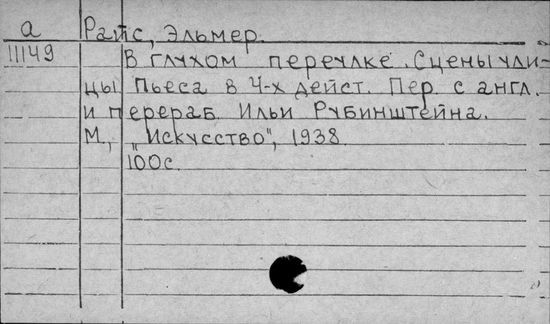 а Райс, Эльмер.
11149 В глухом переулке. Сцены ули-
цы. Пьеса в 4-х дейст. Пер. с англ.
и перераб. Ильи Рубинштейна.
М., "Искусство", 1938.
100с.